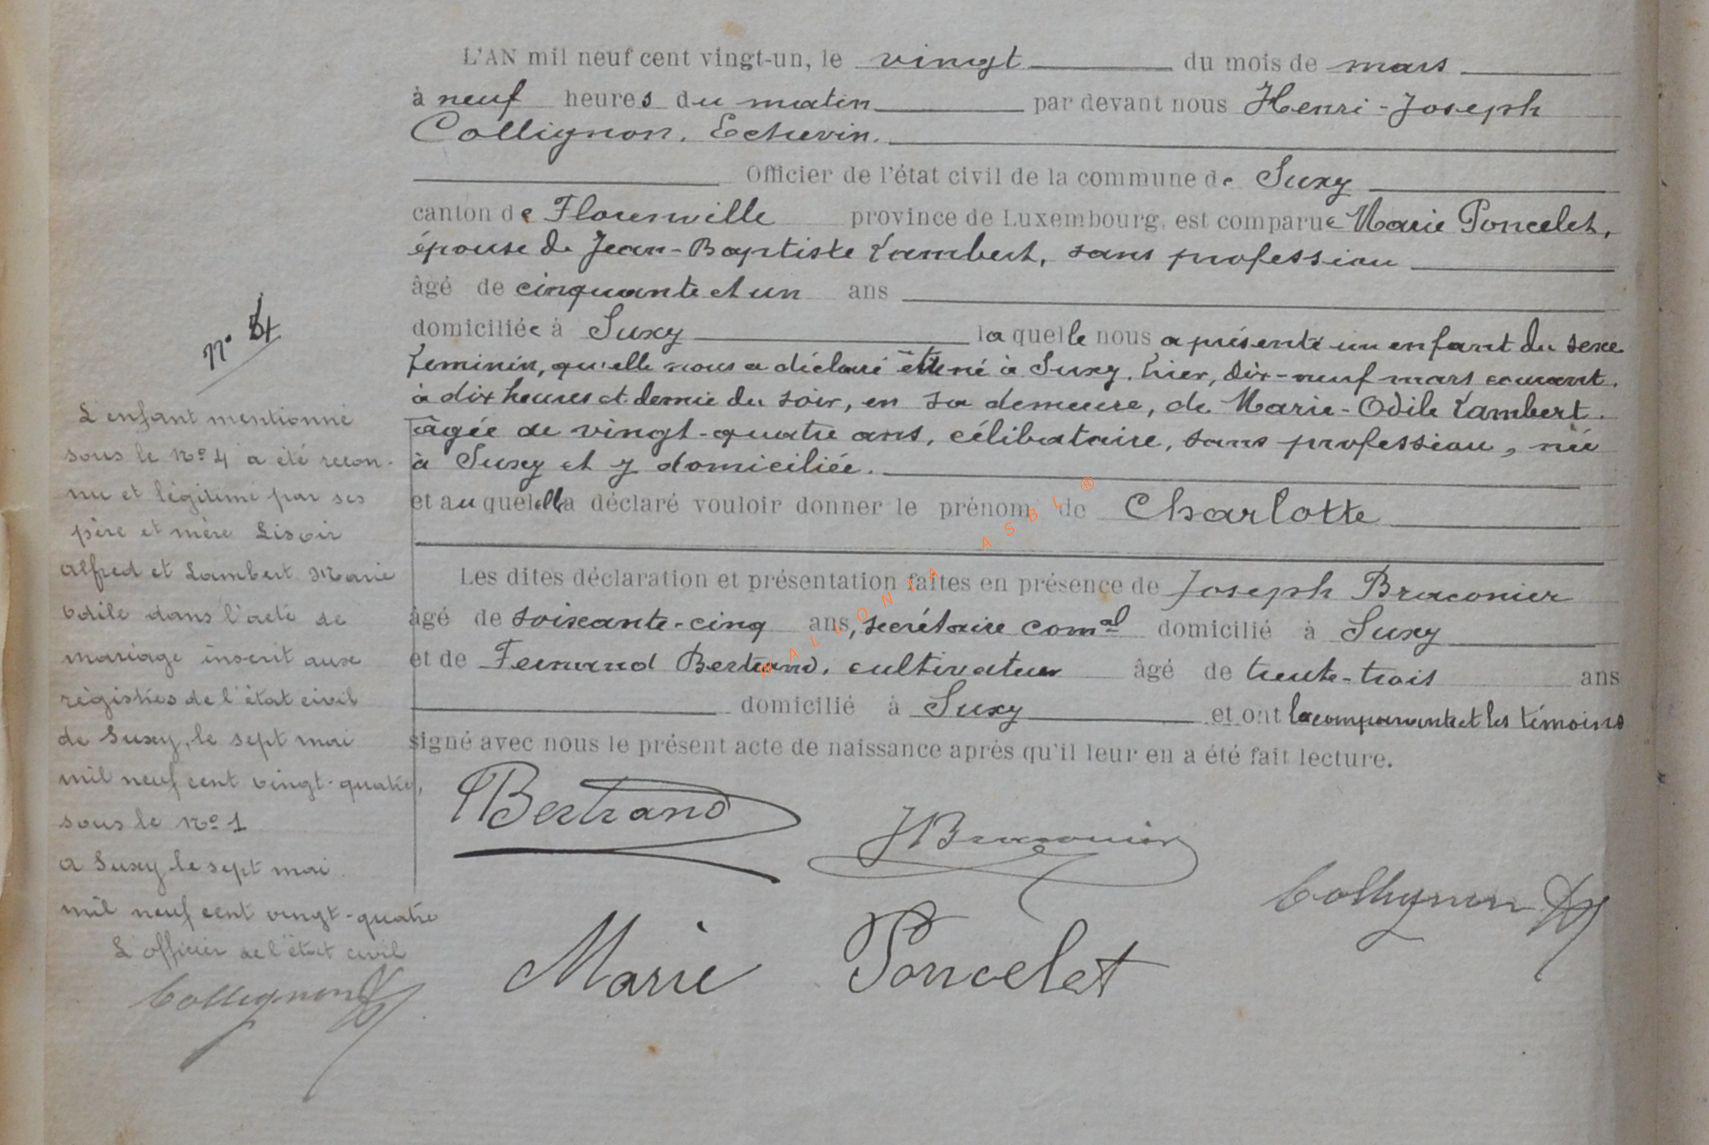 L'AN mil neuf cent vingt-un, le vingt du mois de mars
à neuf heures du matin par devant nous Henri-Joseph
Collignon, Echevin.
Officier de l'état civil de la commune de Suxy
canton de Florenville province de Luxembourg, est comparue Marie Poncelet,
épouse de Jean-Baptiste Lambert, sans profession
âgé de cinquante et un ans
domiciliée à Suxy laquelle nous a présenté un enfant du sexe
féminin, qu'elle nous a déclaré être né à Suxy, hier, dix-neuf mars courant,
à dix heures et demie du soir, en sa demeure, de Marie-Odile Lambert,
âgée de vingt-quatre ans, célibataire, sans profession, née
à Suxy et y domiciliée.
et auquel elle a déclaré vouloir donner le prénom de Charlotte
Les dites déclaration et présentation faites en présence de Joseph Braconier
âgé de soixante-cinq ans, secrétaire comal domicilié à Suxy
et de Fernand Bertrand, cultivateur âgé de trente-trois ans
domicilié à Suxy et ont la comparante et les témoins
signé avec nous le présent acte de naissance après qu'il leur en a été fait lecture.
Bertrand
J Braconier
Collignon
Marie Poncelet
n° 4
L'enfant mentionné
sous le N° 4 a été recon-
nu et légitimé par ses
père et mère Lisoir
Alfred et Lambert Marie
Odile dans l'acte de
mariage inscrit aux
régistres de l'état civil
de Suxy, le sept mai
mil neuf cent vingt-quatre,
sous le N° 1
A Suxy le sept mai
mil neuf cent vingt-quatre
L'officier de l'état civil
Collignon
WALLONIA ASBL ®